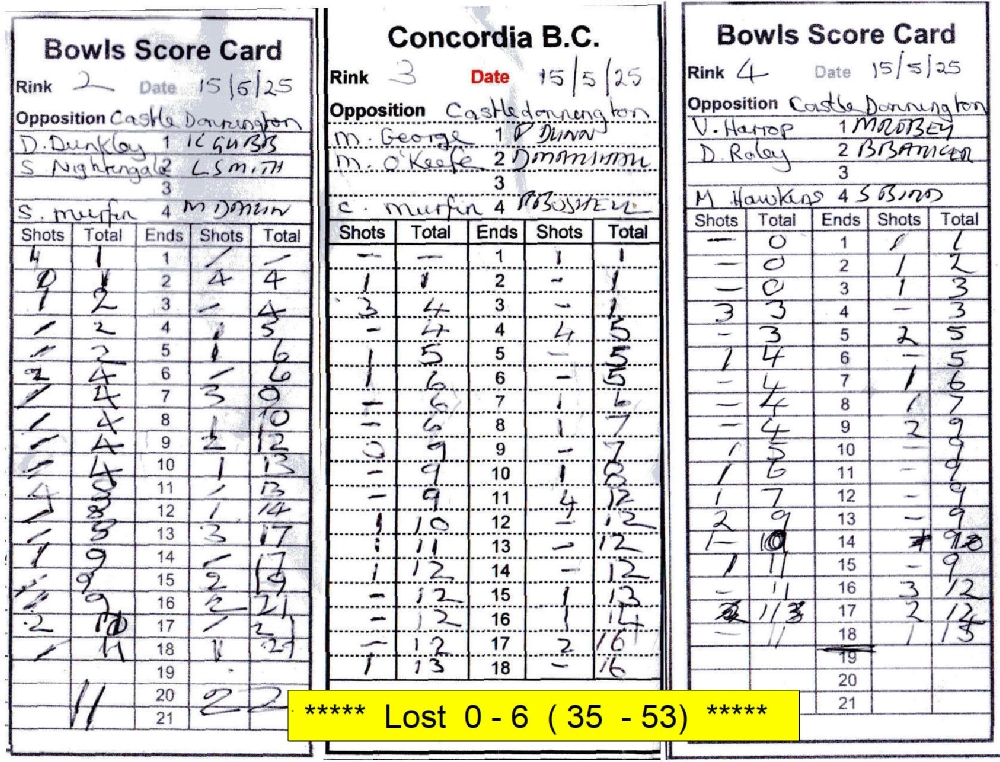 Bowls Score Card
Rink 2 Date 15/5/25
Opposition Castle Donnington
D. Dunkley 1 K GUBB
S Nightingale 2 L SMITH
3
S. Murfin 4
Shots Total Ends Shots Total
1 1 - -
0 1 2 4 4
1 2 3 - 4
- 2 4 1 5
- 2 5 1 6
2 4 6 - 6
- 4 7 3
- 4 8 1 10
- 4 9 2 12
- 4 10 1 13
4 8 11 - 13
- 8 12 1 14
- 8 13 3 17
1 9 14 - 17
- 9 15 2 19
- 9 16 2 21
2 17 - 21
- 11 18 1
19
20
21
11 22
Concordia B.C.
Rink 3 Date 15/5/25
Opposition Castledonnington
M. George 1 P DUNN
M. O'Keefe 2
3
C. Murfin 4
Shots Total Ends Shots Total
- - 1 1 1
1 1 2 - 1
3 4 3 - 1
- 4 4 4 5
1 5 5 - 5
1 6 6 - 5
- 6 7 1 6
- 6 8 1 7
3 9 9 - 7
- 9 10 1 8
- 9 11 4 12
1 10 12 - 12
1 11 13 - 12
1 12 14 - 12
- 12 15 1 13
- 12 16 1 14
- 12 17 2 16
1 13 18 - 16
Bowls Score Card
Rink 4 Date 15/5/25
Opposition Castle Donnington
V. Harrop 1 M ROBEY
D. Roley 2
3
M Hawkins 4 S BIRD
Shots Total Ends Shots Total
- 0 1 1 1
- 0 2 1 2
- 0 3 1 3
3 3 4 - 3
- 3 5 2 5
1 4 6 - 5
- 4 7 1 6
- 4 8 1 7
- 4 9 2 9
1 5 10 - 9
1 6 11 - 9
1 7 12 - 9
2 9 13 - 9
1 10 14 9
1 11 15 - 9
- 11 16 3 12
11 17 2
- 11 18 1 15
19
20
21
***** Lost 0 - 6 ( 35 - 53) *****